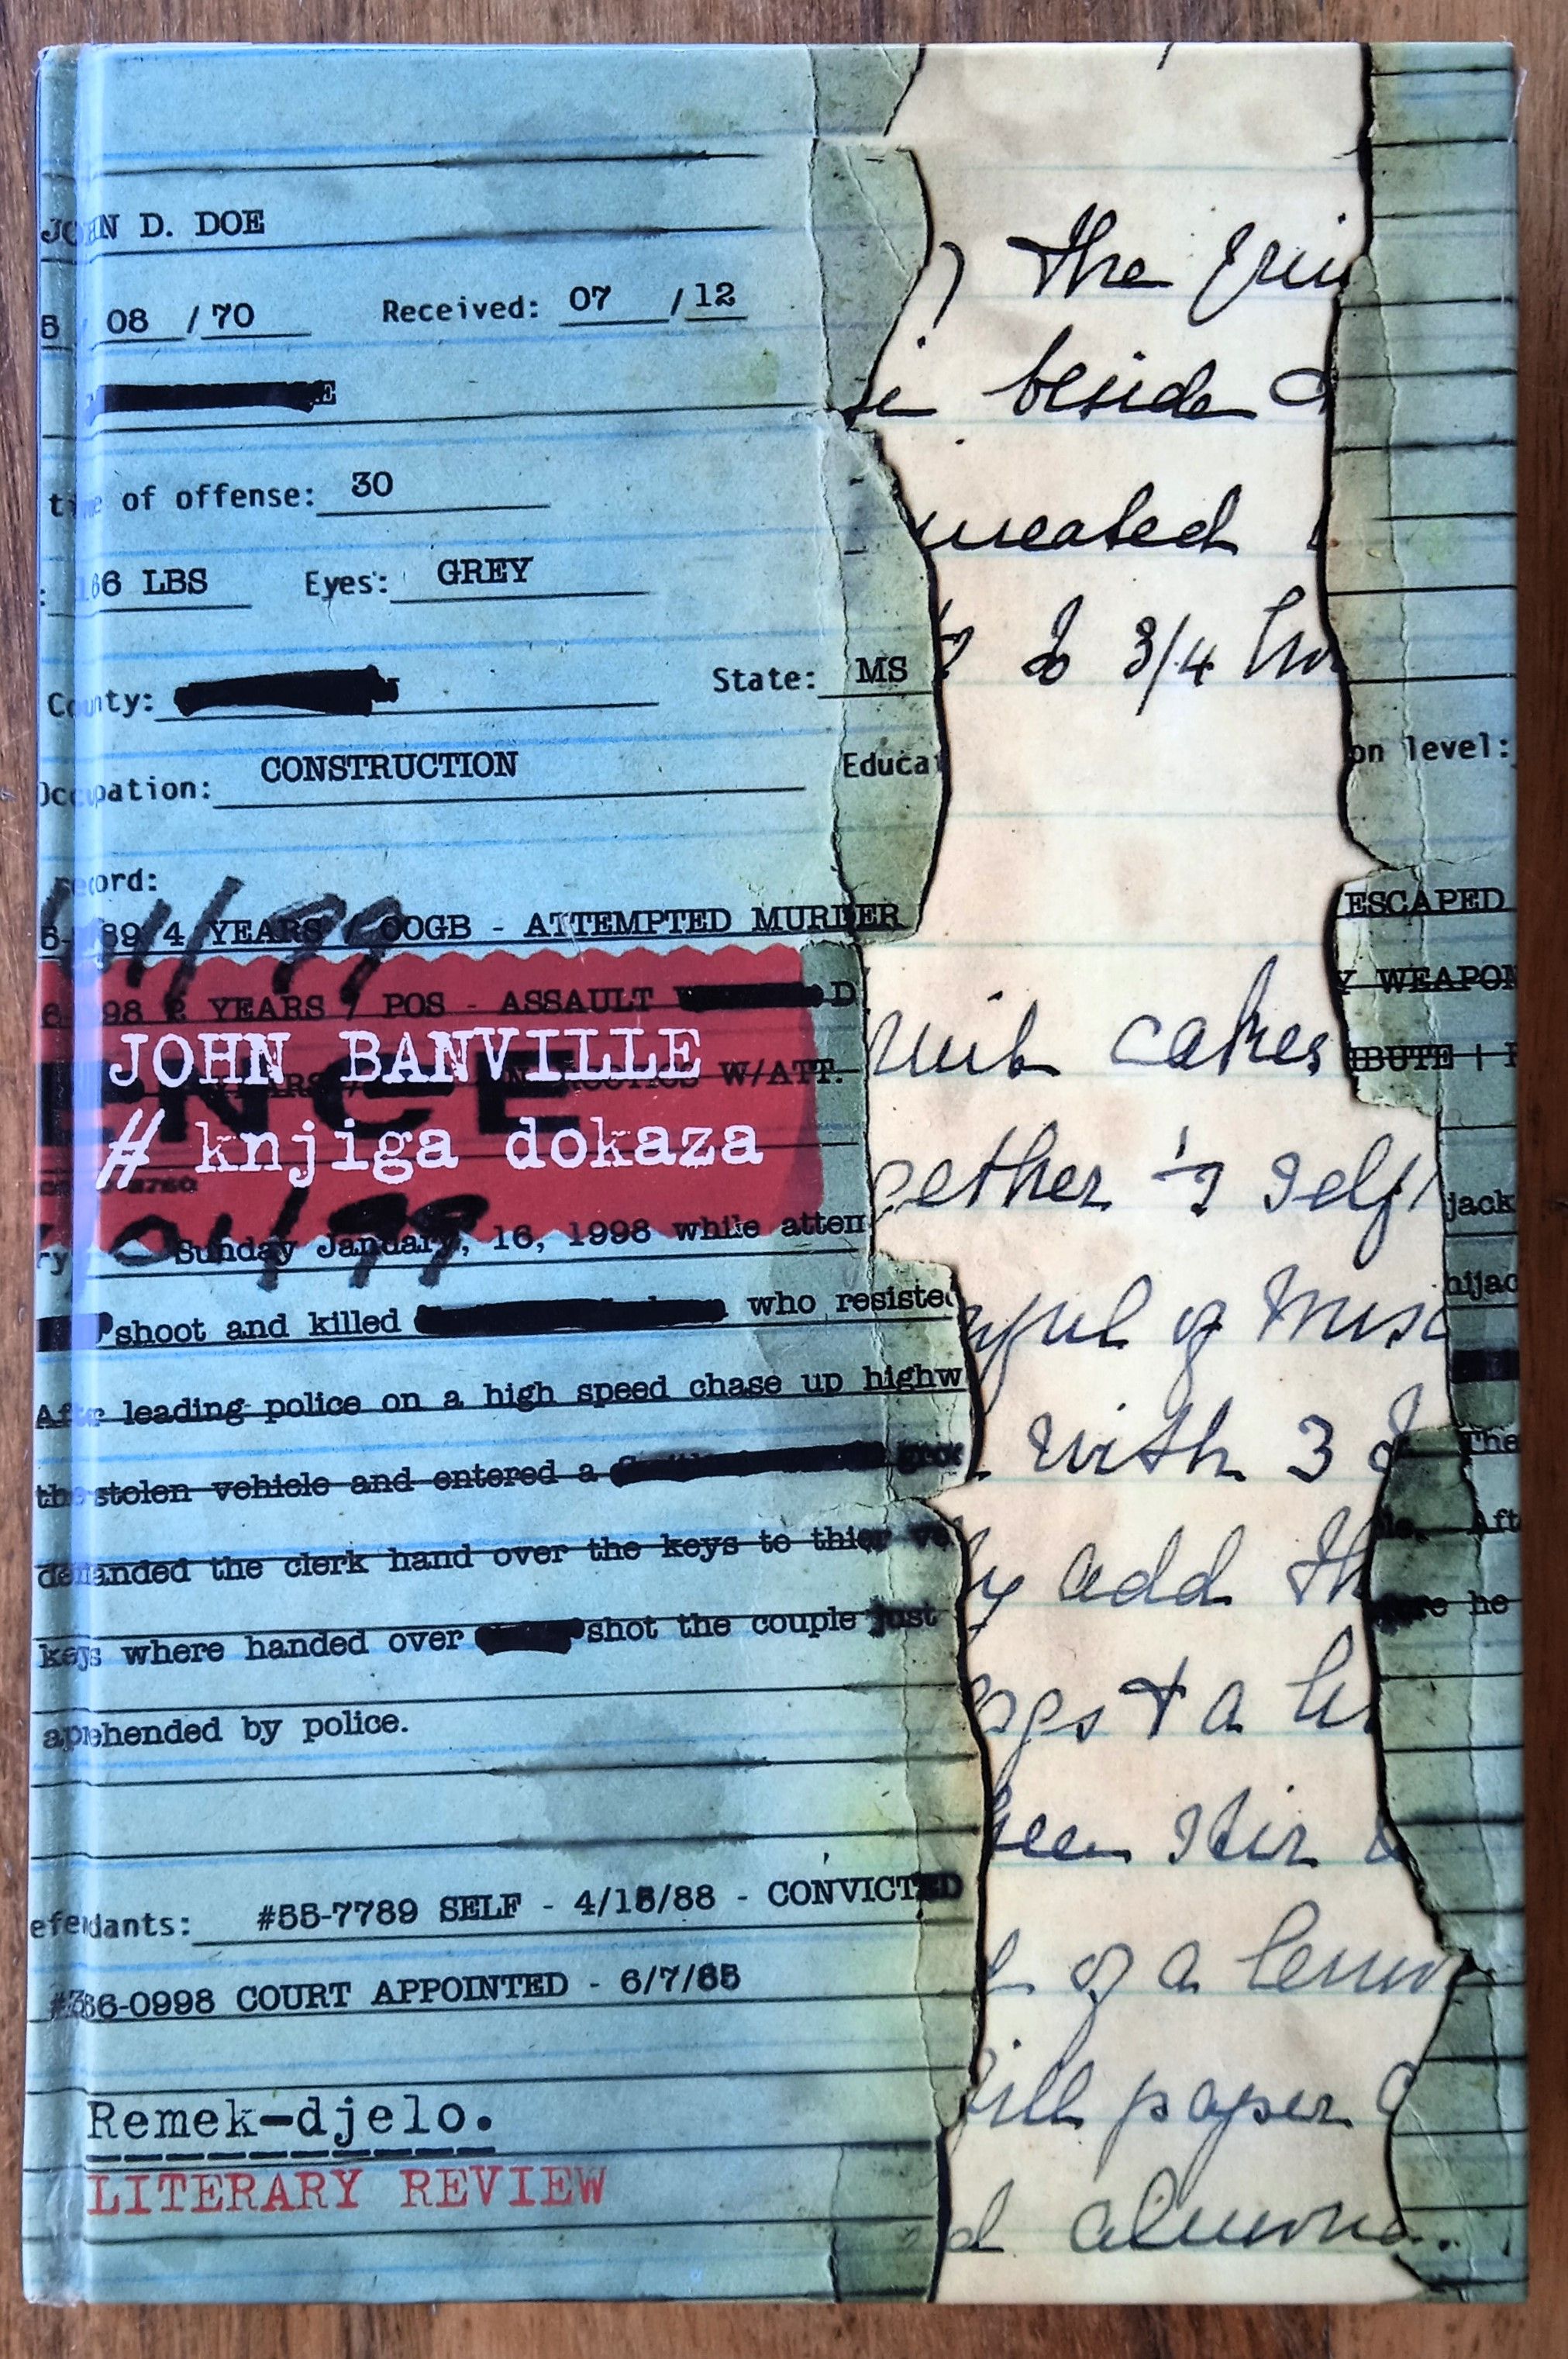 JOHN D. DOE
08 / 70 Received: 07 / 12
time of offense: 30
166 LBS Eyes: GREY
County: State: MS
Occupation: CONSTRUCTION Educa on level:
ord:
4 YEARS / OOGB - ATTEMPTED MURDER ESCAPED
98 2 YEARS / POS - ASSAULT D Y WEAPON
JOHN BANVILLE
W/ATT. IBUTE
ENCE
# knjiga dokaza
01/99
Sunday January, 16, 1998 while atten jack
shoot and killed who resisted hijac
After leading police on a high speed chase up highw The
the stolen vehicle and entered a
demanded the clerk hand over the keys to thier ve Aft
keys where handed over shot the couple just he
aprehended by police.
efendants: #55-7789 SELF - 4/15/88 - CONVICTED
#366-0998 COURT APPOINTED - 6/7/85
Remek-djelo.
LITERARY REVIEW
the
beside
to 3/4
cakes
gether
of
with 3
add th
eggs + a
stir
of a lemon
fill paper
almond.